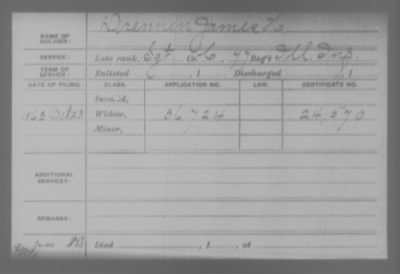 NAME OF SOLDIER: Drennen James H
SERVICE: Late rank, Sgt. Co. C, 77 Reg't Ill. Inf.
TERM OF SERVICE: Enlisted , 1 Discharged , 1
DATE OF FILING. CLASS. APPLICATION NO. LAW. CERTIFICATE NO.
Invalid,
1863 Oct 23 Widow, 36,724 24,570
Minor,
ADDITIONAL SERVICES:
REMARKS:
Died , 1 , at